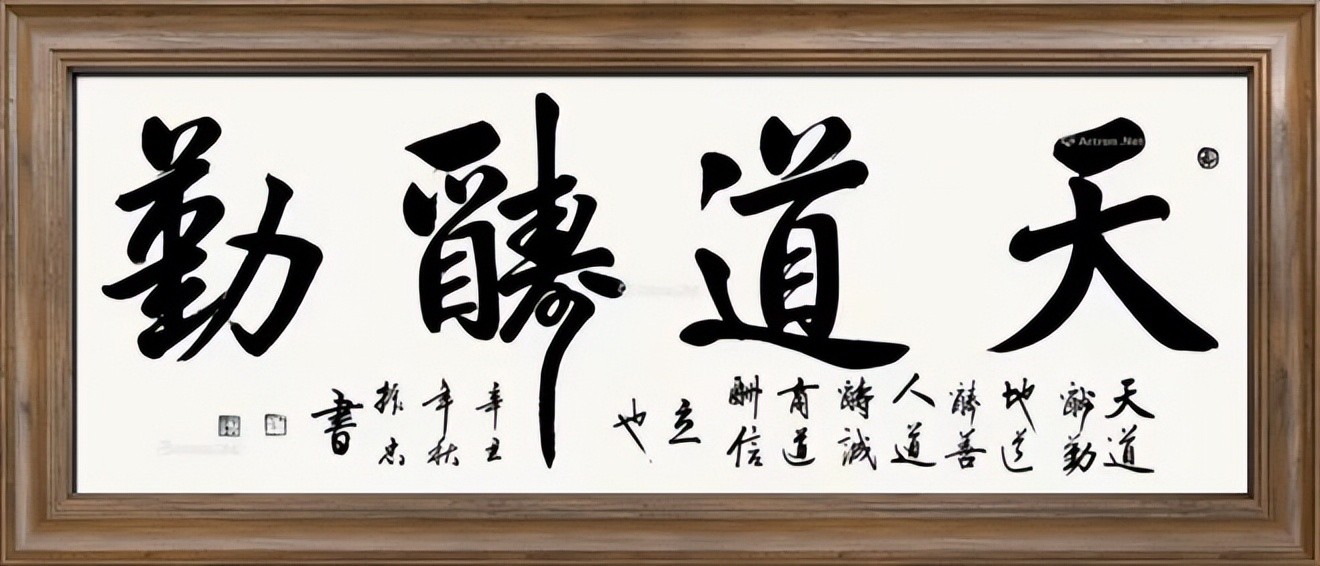 天道醻勤
天道
酬勤
地道
醻善
人道
醻誠
商道
酬信
立
也
辛丑
年秋
振忠
書
Artron.Net